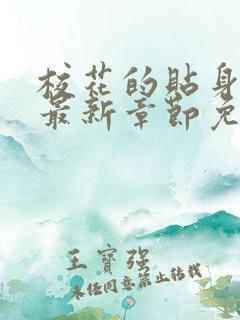 校花的貼身
最新章節免
王寶强
未经同意禁止转载